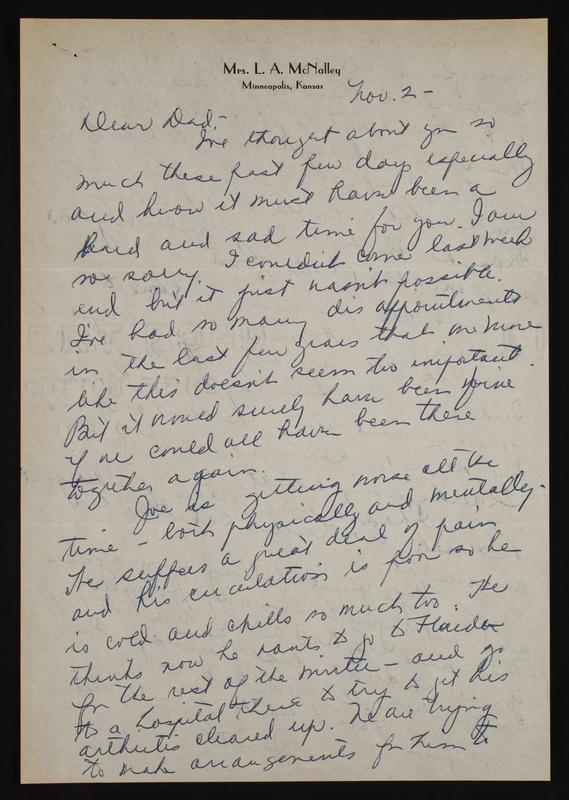 Mrs. L. A. McNalley
Minneapolis, Kansas
Nov. 2 -
Dear Dad,-
I've thought about you so
much these past few days especially
and know it must have been a
hard and sad time for you. I am
so sorry. I couldn't come last week
end but it just wasn't possible.
I've had so many disappointments
in the last few years that one more
like this doesn't seem too important.
But it would surely have been fine
if we could all have been there
together again.
Joe is getting worse all the
time - both physically and mentally.
He suffers a great deal of pain
and his circulation is poor so he
is cold and chills so much too. He
thinks now he wants to go to Florida
for the rest of the winter - and go
to a hospital there to try to get his
arthritis cleared up. We are trying
to make arrangements for them to